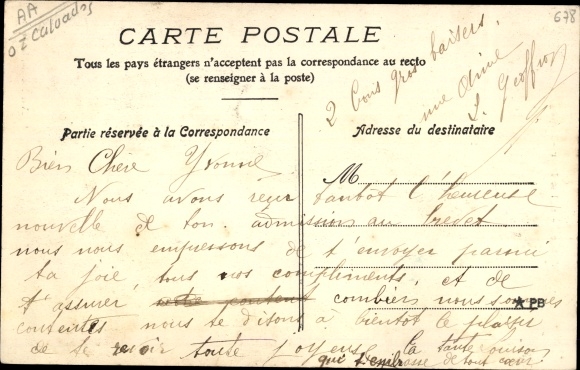 AA
02 Calvados
678
CARTE POSTALE
Tous les pays étrangers n'acceptent pas la correspondance au recto
(se renseigner à la poste)
2 bons gros baisers.
S. Geoffroy
Partie réservée à la Correspondance
Adresse du destinataire
Bien Chère Yvonne
M
Nous avons reçu tantot l'heureuse
nouvelle de ton admission au brevet
nous nous empressons de t'envoyer parmi
ta joie, tous nos compliments, et de
t'assurer combien nous sommes
contentes nous te disons à bientôt le plaisir
de te revoir toute joyeuse ta tante Louison
qui t'embrasse de tout cœur
★ PB